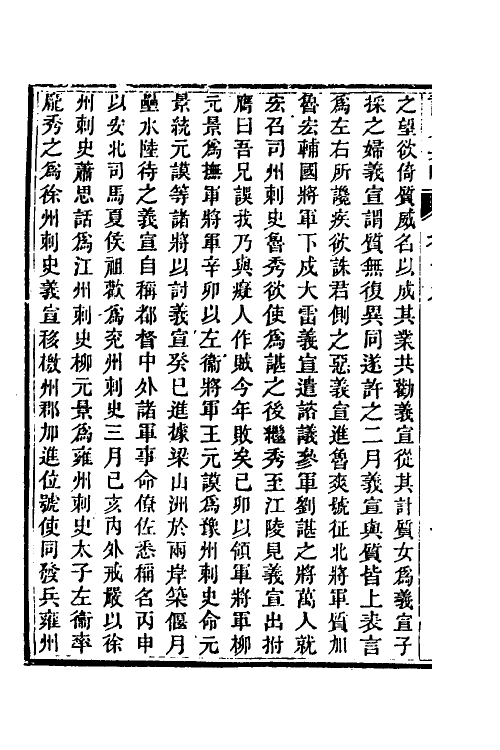 之望欲倚質威名以成其業共勸義宣從其計質女爲義宣子
採之婦義宣謂質無復異同遂許之二月義宣與質皆上表言
爲左右所讒疾欲誅君側之惡義宣進魯爽號征北將軍質加
魯宏輔國將軍下戍大雷義宣遣諮議參軍劉諶之將萬人就
宏召司州刺史魯秀欲使爲諶之後繼秀至江陵見義宣出拊
膺曰吾兄誤我乃與癡人作賊今年敗矣己卯以領軍將軍柳
元景爲撫軍將軍辛卯以左衞將軍王元謨爲豫州刺史命元
景統元謨等諸將以討義宣癸巳進據梁山洲於兩岸築偃月
壘水陸待之義宣自稱都督中外諸軍事命僚佐悉稱名丙申
以安北司馬夏侯祖歡爲兗州刺史三月己亥內外戒嚴以徐
州刺史蕭思話爲江州刺史柳元景爲雍州刺史太子左衞率
龐秀之爲徐州刺史義宣移檄州郡加進位號使同發兵雍州